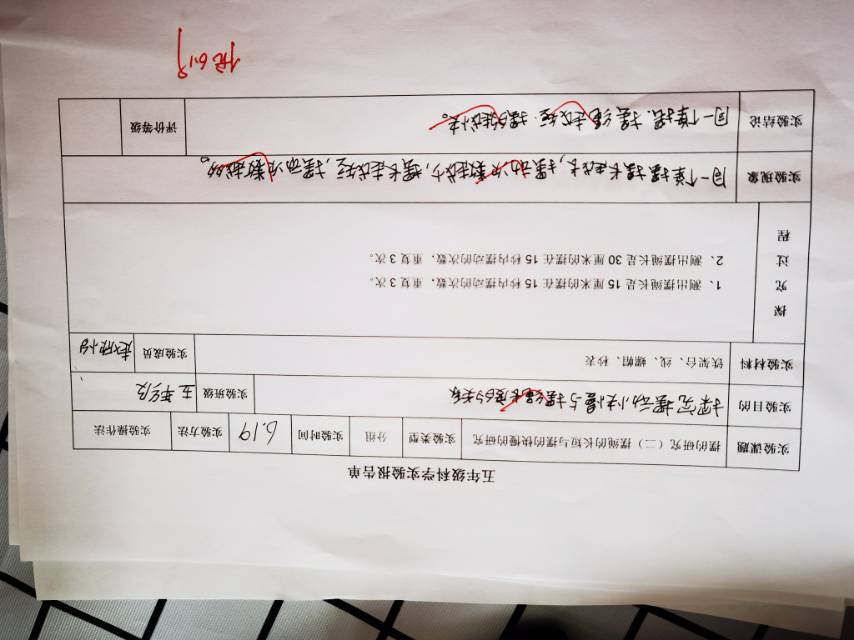 五年级科学实验报告单
实验课题 摆的研究（二）摆绳的长短与摆的快慢的研究 实验类型 分组 实验时间 6.19 实验方法 实验操作法
实验目的 探究摆动快慢与摆绳长度的关系 实验班级
实验材料 铁架台、线、螺帽、秒表 实验成员
探究过程
1、测出摆绳长是 15 厘米的摆在 15 秒内摆动的次数，重复 3 次。
2、测出摆绳长是 30 厘米的摆在 15 秒内摆动的次数，重复 3 次。
实验现象 同一个单摆摆长越长，摆动次数越少，摆长越短，摆动次数越多。
实验结论 同一个单摆，摆绳越短，摆的越快。 评价等级